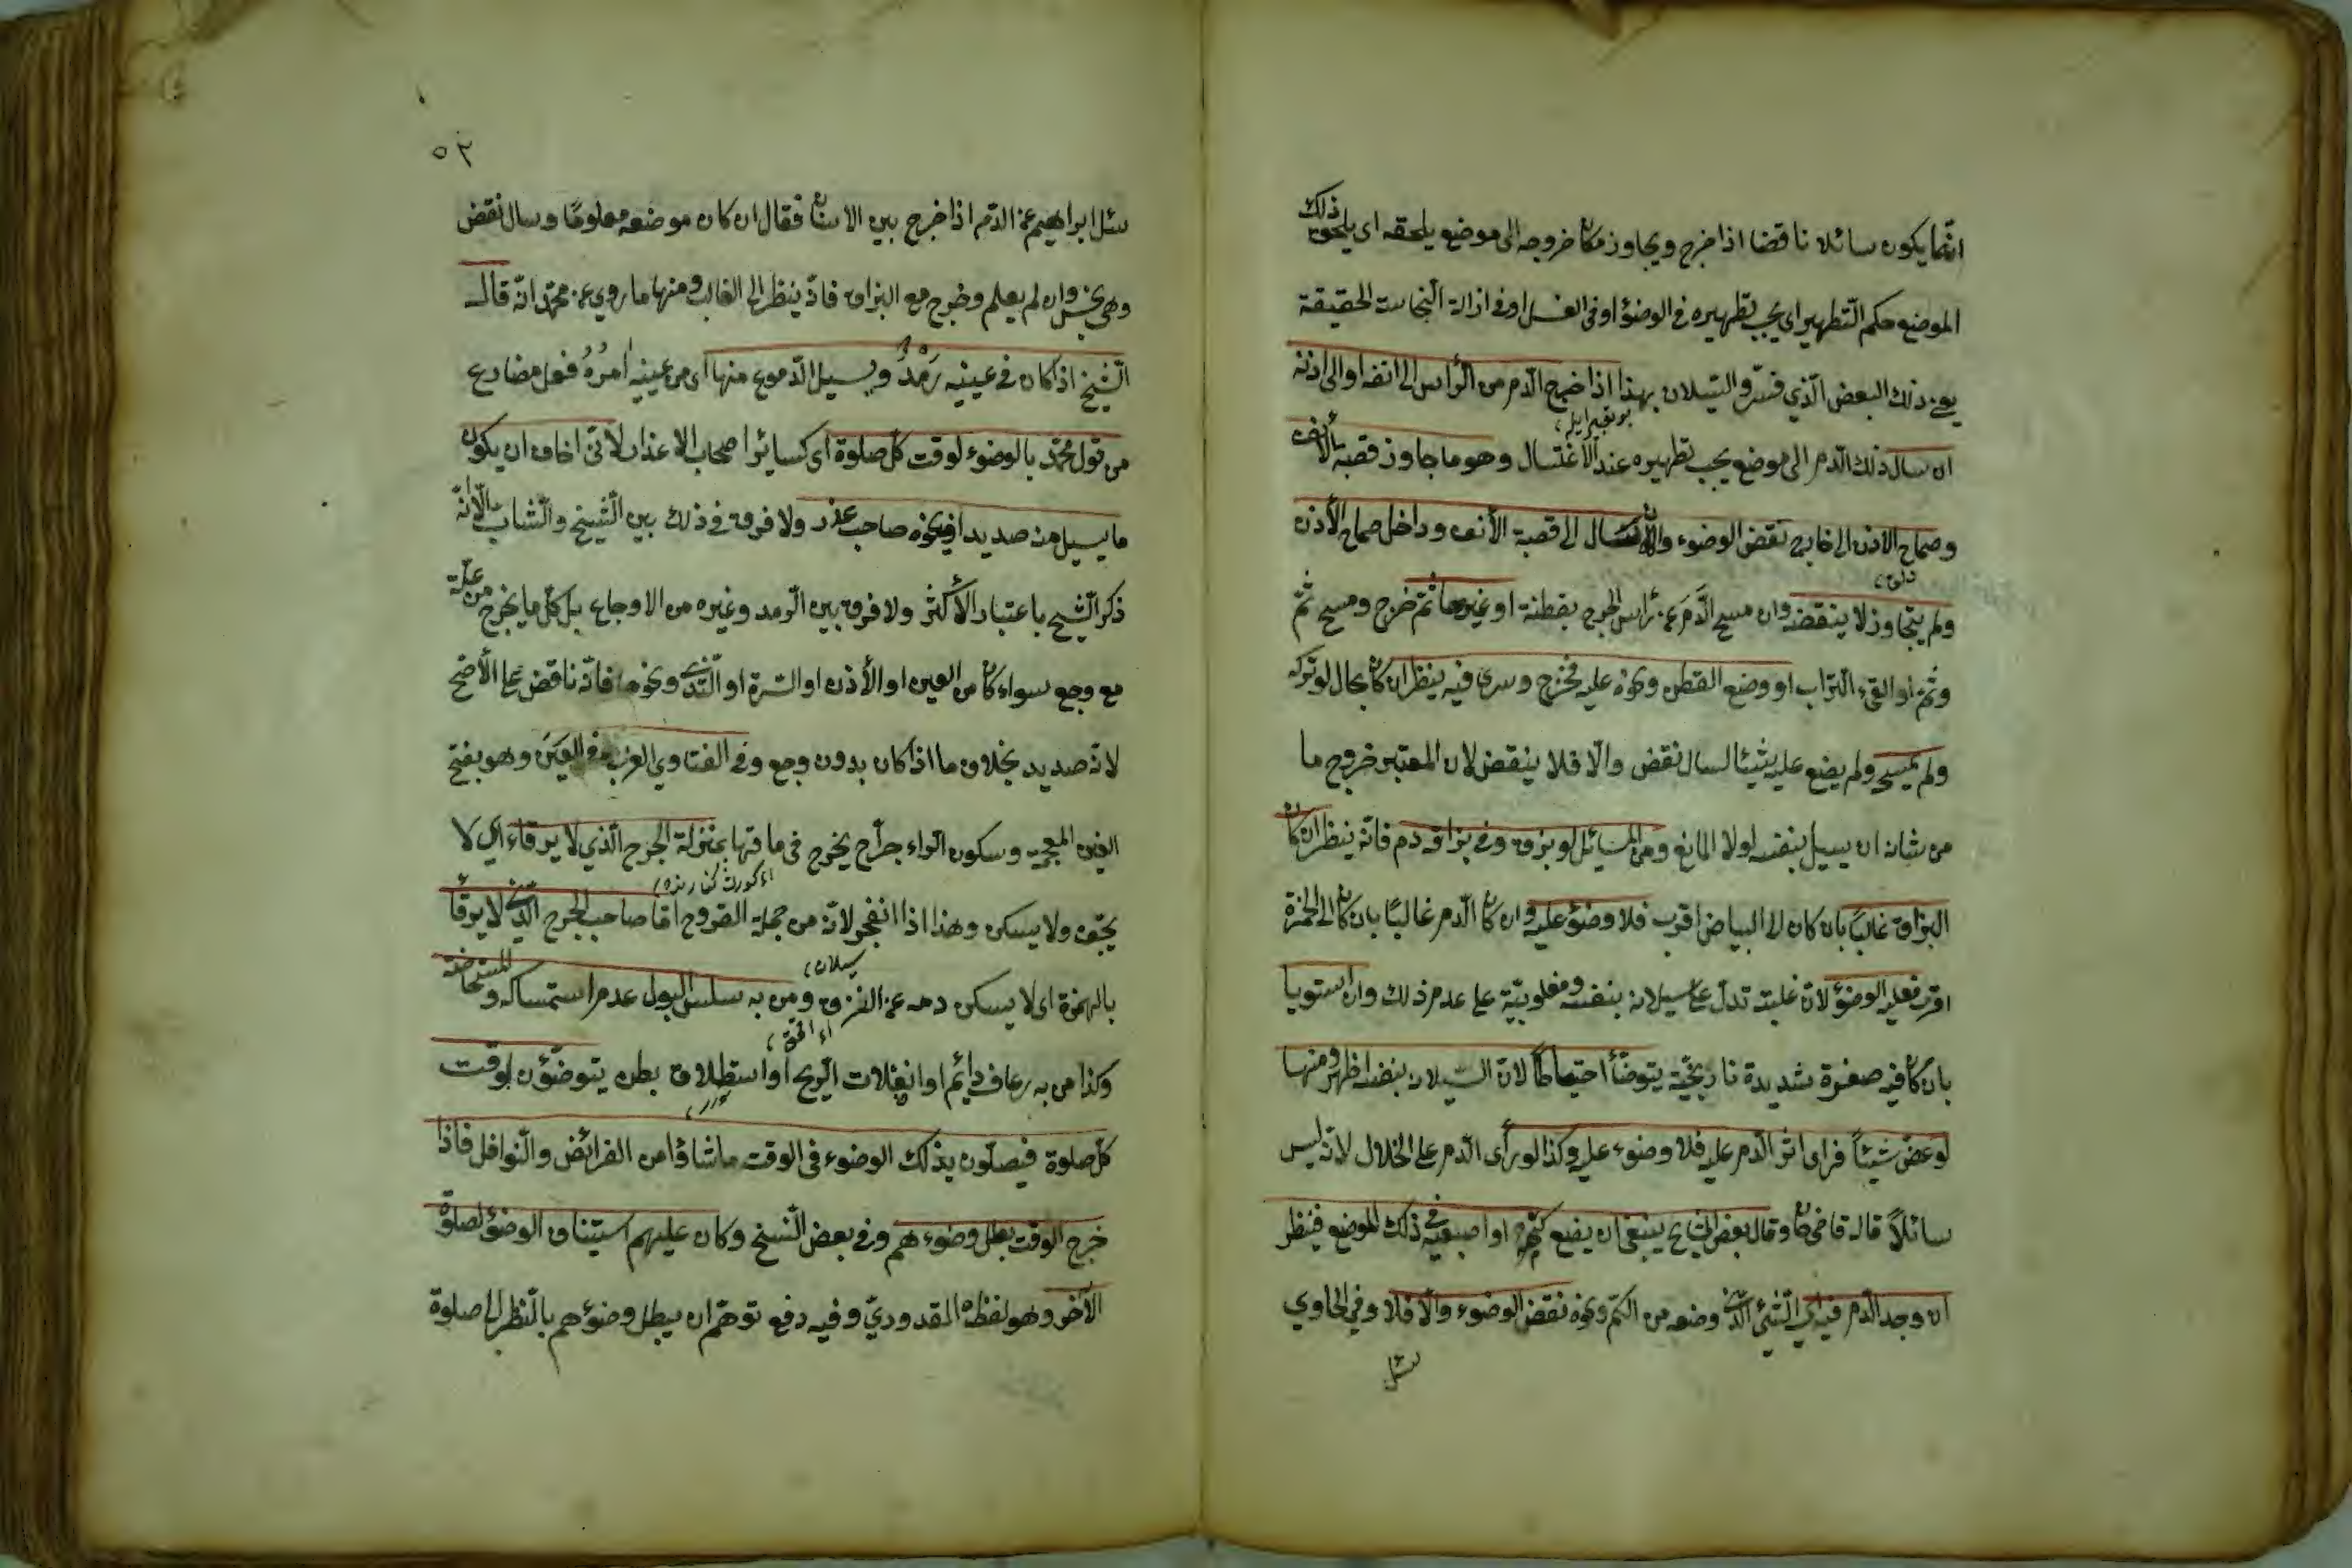 انّما يكون سائلا ناقضا اذا خرج ويجاوز مكان خروجه الى موضع يلحقه اى يلحق ذلك
الموضع حكم التّطهير اى يجب تطهيره فى الوضوء او فى الغسل او فى ازالة النّجاسة الحقيقة
يعنى ذلك البعض الّذي فسّر السّيلان بهذا اذا خرج الدّم من الرّاس الى انفه او الى اذنه
ان سال ذلك الدّم الى موضع يجب تطهيره عند الاغتسال وهو ما جاوز قصبة الأنف
وصماخ الاذن الى خارج نقض الوضوء والّا ان سال الى قصبة الأنف وداخل صماخ الأذن
ولم يتجاوز لا ينقضه وان مسح الدَّمَ عن رأس الجرح بقطنة او غيرها ثمّ خرج ومسح ثمّ
وثمّ او القى التّراب او وضع القطن ونحوه عليه فخرج وسرى فيه ينظر ان كان بحال لو تركه
ولم يمسح ولم يضع عليه شيئا لسال نقض والّا فلا ينقض لان المعتبر خروج ما
من شانه ان يسيل بنفسه لولا المانع ومن المسائل لو بزق وفى بزاقه دم فانّه ينظر ان كان
البزاق غالبًا بان كان الى البياض اقرب فلا وضوء عليه وان كان الدّم غالبًا بان كان الى الحمرة
اقرب فعليه الوضوء لأنّ غلبته تدلّ على سيلانه بنفسه ومغلوبيّته على عدم ذلك وان استويا
بان كان فيه صفرة شديدة نارنجيّة يتوضّأ احتياطًا لانّ السّيلان بنفسه اظهر ومنها
لو عضّ شيئاً فراى اثر الدّم عليه فلا وضوء عليه وكذا لو رأى الدّم على الخلال لانّه ليس
سائلاً قال قاضى خان وقال بعض المشايخ ينبغى ان يضع كمّه او اصبعه فى ذلك الموضع فينظر
ان وجد الدّم فيه اي الشّئ الّذى وضعه من الكمّ ونحوه نقض الوضوء والّا فلا وفي الحاوي
سئل
٥٢
سئل ابراهيم عن الدّم اذا خرج بين الاسنان فقال ان كان موضعه معلومًا وسال نقض
وهى نجس وان لم يعلم وخرج مع البزاق فانّه ينظر الى الغالب ومنها ما روي عن محمّد انّه قال
الشّيخ اذا كان فى عينيه رَمَدٌ ويسيل الدّموع منها اى من عينيه اٰمرُهُ فعل مضارع
من قول محمّد بالوضوء لوقت كلّ صلوة اى كسائر اصحاب الاعذار لانّى اخاف ان يكون
ما يسيل منه صديد افيكون صاحب عذر ولا فرق فى ذلك بين الشّيخ والشّاب الّا انّه
ذكر الشّيخ باعتبار الأكثر ولا فرق بين الرّمد وغيره من الاوجاع بل كلّ ما يخرج من علّة
مع وجع سواء كان من العين او الأذن او السّرة او الثّدى ونحوها فانّه ناقض على الأصّح
لانّه صديد بخلاف ما اذا كان بدون وجع وفى الفتاوي الغرب فى العين وهو بفتح
الغين المعجمة وسكون الرّاء جراح يخرج فى ماقها بمنزلة الجرح الّذي لا يرقاء اي لا
يجّف ولا يسكن وهذا اذا انفجر لانّه من جملة القروح امّا صاحب الجرح الّذى لا يرقأ
بالهمزة اى لا يسكن دمه عن النزف ومن به سلس البول عدم استمساكه والمستحاضة
وكذا من به رعاف دائم او انفلات الرّيح او استطلاق بطن يتوضّؤن لوقت
كلّ صلوة فيصلّون بذلك الوضوء فى الوقت ما شاؤا من الفرائض والنّوافل فاذا
خرج الوقت بطل وضوءهم وفى بعض النّسخ وكان عليهم استيناف الوضوء لصلوة
الأخر وهو لفظه المقدوديّ وفيه دفع توهّم ان يبطل وضوءهم بالنّظر الى صلوة